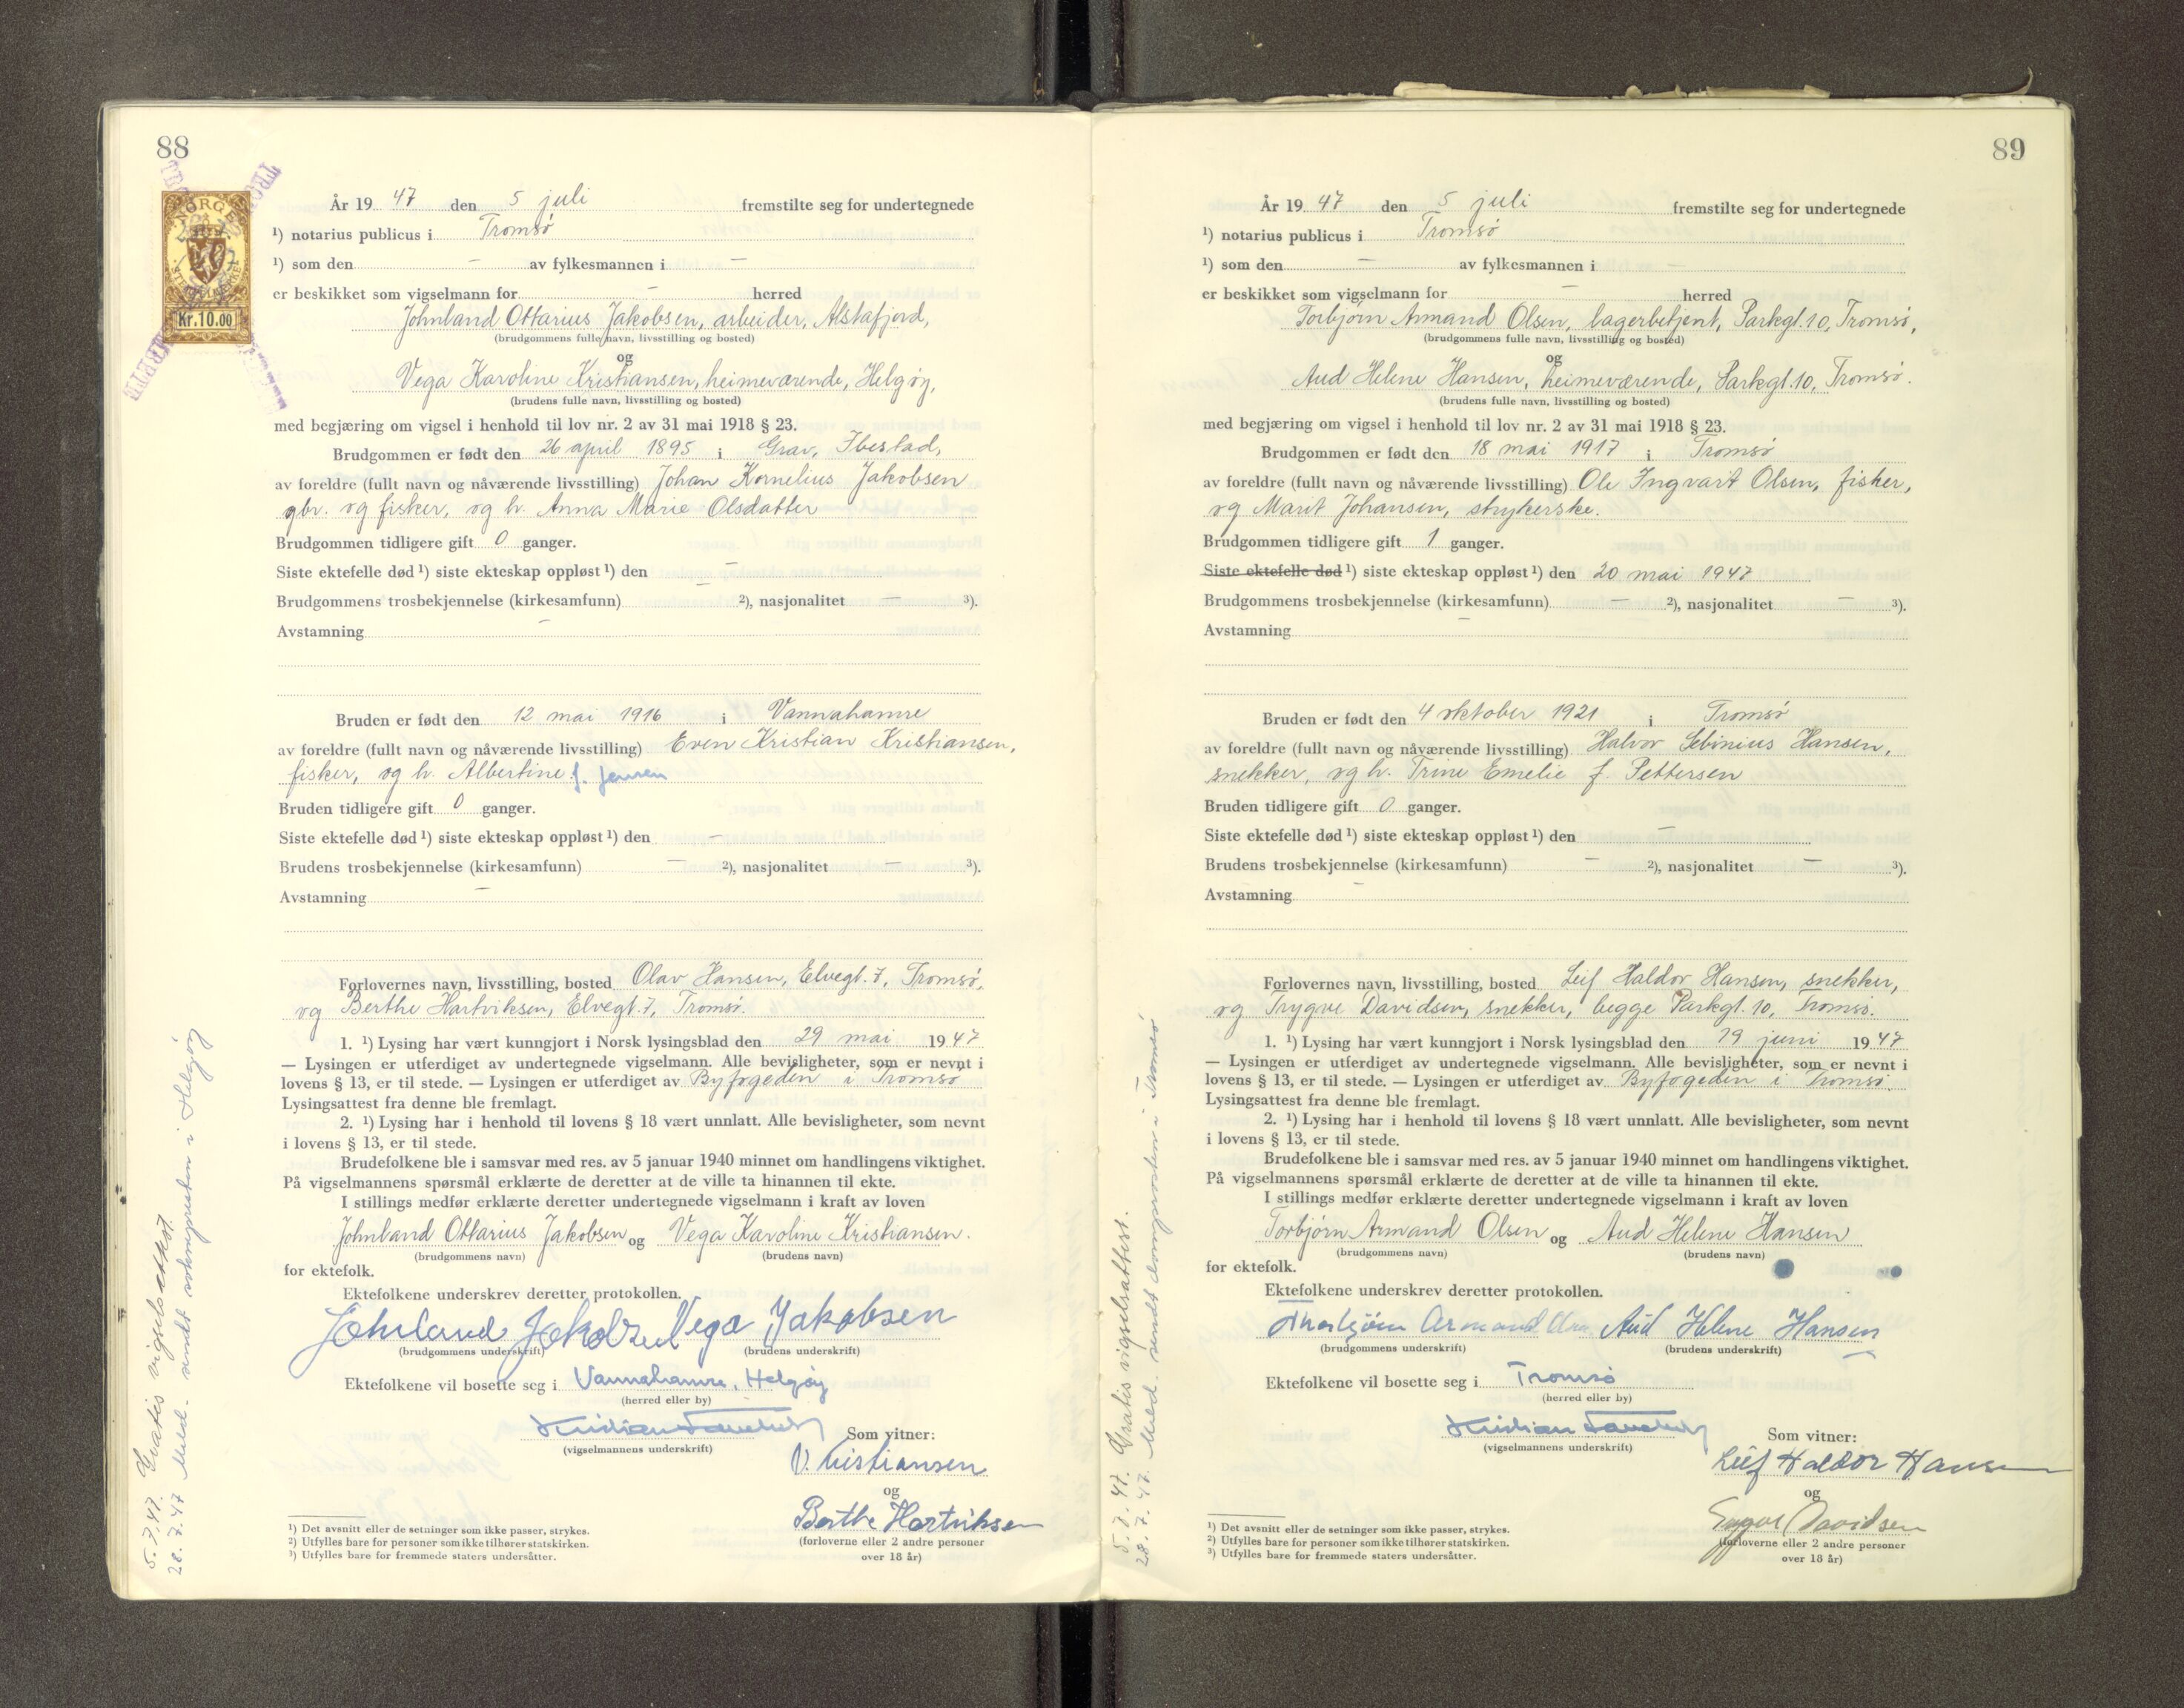 88
NORGE
Kr.10.00
År 19 47 den 5 juli fremstilte seg for undertegnede
¹) notarius publicus i Tromsø
¹) som den — av fylkesmannen i —
er beskikket som vigselmann for — herred
Johnland Ottarius Jakobsen, arbeider, Alstafjord,
(brudgommens fulle navn, livsstilling og bosted)
og
Vega Karoline Kristiansen, heimeværende, Helgøy,
(brudens fulle navn, livsstilling og bosted)
med begjæring om vigsel i henhold til lov nr. 2 av 31 mai 1918 § 23.
Brudgommen er født den 26 april 1895 i Grav, Ibestad,
av foreldre (fullt navn og nåværende livsstilling) Johan Kornelius Jakobsen
gbr. og fisker, og h. Anna Marie Olsdatter
Brudgommen tidligere gift 0 ganger.
Siste ektefelle død ¹) siste ekteskap oppløst ¹) den —
Brudgommens trosbekjennelse (kirkesamfunn) — ²), nasjonalitet — ³).
Avstamning —
Bruden er født den 12 mai 1916 i Vannahamre
av foreldre (fullt navn og nåværende livsstilling) Even Kristian Kristiansen,
fisker, og h. Albertine f. Jensen
Bruden tidligere gift 0 ganger.
Siste ektefelle død ¹) siste ekteskap oppløst ¹) den —
Brudens trosbekjennelse (kirkesamfunn) — ²), nasjonalitet — ³).
Avstamning —
Forlovernes navn, livsstilling, bosted Olav Hansen, Elvegt. 7, Tromsø,
og Berthe Hartviksen, Elvegt. 7, Tromsø.
1. ¹) Lysing har vært kunngjort i Norsk lysingsblad den 29 mai 1947
— Lysingen er utferdiget av undertegnede vigselmann. Alle bevisligheter, som er nevnt i
lovens § 13, er til stede. — Lysingen er utferdiget av Byfogeden i Tromsø
Lysingsattest fra denne ble fremlagt.
2. ¹) Lysing har i henhold til lovens § 18 vært unnlatt. Alle bevisligheter, som nevnt
i lovens § 13, er til stede.
Brudefolkene ble i samsvar med res. av 5 januar 1940 minnet om handlingens viktighet.
På vigselmannens spørsmål erklærte de deretter at de ville ta hinannen til ekte.
I stillings medfør erklærte deretter undertegnede vigselmann i kraft av loven
Johnland Ottarius Jakobsen og Vega Karoline Kristiansen.
(brudgommens navn) (brudens navn)
for ektefolk.
Ektefolkene underskrev deretter protokollen.
Johnland Jakobsen Vega Jakobsen
(brudgommens underskrift) (brudens underskrift)
Ektefolkene vil bosette seg i Vannahamre, Helgøy
(herred eller by)
(vigselmannens underskrift)
Som vitner:
V. Kristiansen
og
Berthe Hartviksen
(forloverne eller 2 andre personer
over 18 år)
¹) Det avsnitt eller de setninger som ikke passer, strykes.
²) Utfylles bare for personer som ikke tilhører statskirken.
³) Utfylles bare for fremmede staters undersåtter.
5.7.47. Gratis vigselsattest.
28.7.47 Meld. sendt soknepresten i Helgøy
89
År 19 47 den 5 juli fremstilte seg for undertegnede
¹) notarius publicus i Tromsø
¹) som den — av fylkesmannen i —
er beskikket som vigselmann for — herred
Torbjørn Armand Olsen, lagerbetjent, Parkgt. 10, Tromsø,
(brudgommens fulle navn, livsstilling og bosted)
og
Aud Helene Hansen, heimeværende, Parkgt. 10, Tromsø.
(brudens fulle navn, livsstilling og bosted)
med begjæring om vigsel i henhold til lov nr. 2 av 31 mai 1918 § 23.
Brudgommen er født den 18 mai 1917 i Tromsø
av foreldre (fullt navn og nåværende livsstilling) Ole Ingvart Olsen, fisker,
og Marit Johansen, strykerske.
Brudgommen tidligere gift 1 ganger.
Siste ektefelle død ¹) siste ekteskap oppløst ¹) den 20 mai 1947
Brudgommens trosbekjennelse (kirkesamfunn) — ²), nasjonalitet — ³).
Avstamning —
Bruden er født den 4 oktober 1921 i Tromsø
av foreldre (fullt navn og nåværende livsstilling) Halvor Sebinius Hansen,
snekker, og h. Trine Emelie f. Pettersen
Bruden tidligere gift 0 ganger.
Siste ektefelle død ¹) siste ekteskap oppløst ¹) den —
Brudens trosbekjennelse (kirkesamfunn) — ²), nasjonalitet — ³).
Avstamning —
Forlovernes navn, livsstilling, bosted Leif Haldor Hansen, snekker,
og Trygve Davidsen, snekker, begge Parkgt. 10, Tromsø.
1. ¹) Lysing har vært kunngjort i Norsk lysingsblad den 19 juni 1947
— Lysingen er utferdiget av undertegnede vigselmann. Alle bevisligheter, som er nevnt i
lovens § 13, er til stede. — Lysingen er utferdiget av Byfogeden i Tromsø.
Lysingsattest fra denne ble fremlagt.
2. ¹) Lysing har i henhold til lovens § 18 vært unnlatt. Alle bevisligheter, som nevnt
i lovens § 13, er til stede.
Brudefolkene ble i samsvar med res. av 5 januar 1940 minnet om handlingens viktighet.
På vigselmannens spørsmål erklærte de deretter at de ville ta hinannen til ekte.
I stillings medfør erklærte deretter undertegnede vigselmann i kraft av loven
Torbjørn Armand Olsen og Aud Helene Hansen
(brudgommens navn) (brudens navn)
for ektefolk.
Ektefolkene underskrev deretter protokollen.
Thorbjørn Armand Aud Helene Hansen
(brudgommens underskrift) (brudens underskrift)
Ektefolkene vil bosette seg i Tromsø
(herred eller by)
(vigselmannens underskrift)
Som vitner:
Leif Haldor Hansen
og
Davidsen
(forloverne eller 2 andre personer
over 18 år)
¹) Det avsnitt eller de setninger som ikke passer, strykes.
²) Utfylles bare for personer som ikke tilhører statskirken.
³) Utfylles bare for fremmede staters undersåtter.
5.7.47. Gratis vigselsattest.
28.7.47. Meld. sendt domprosten i Tromsø